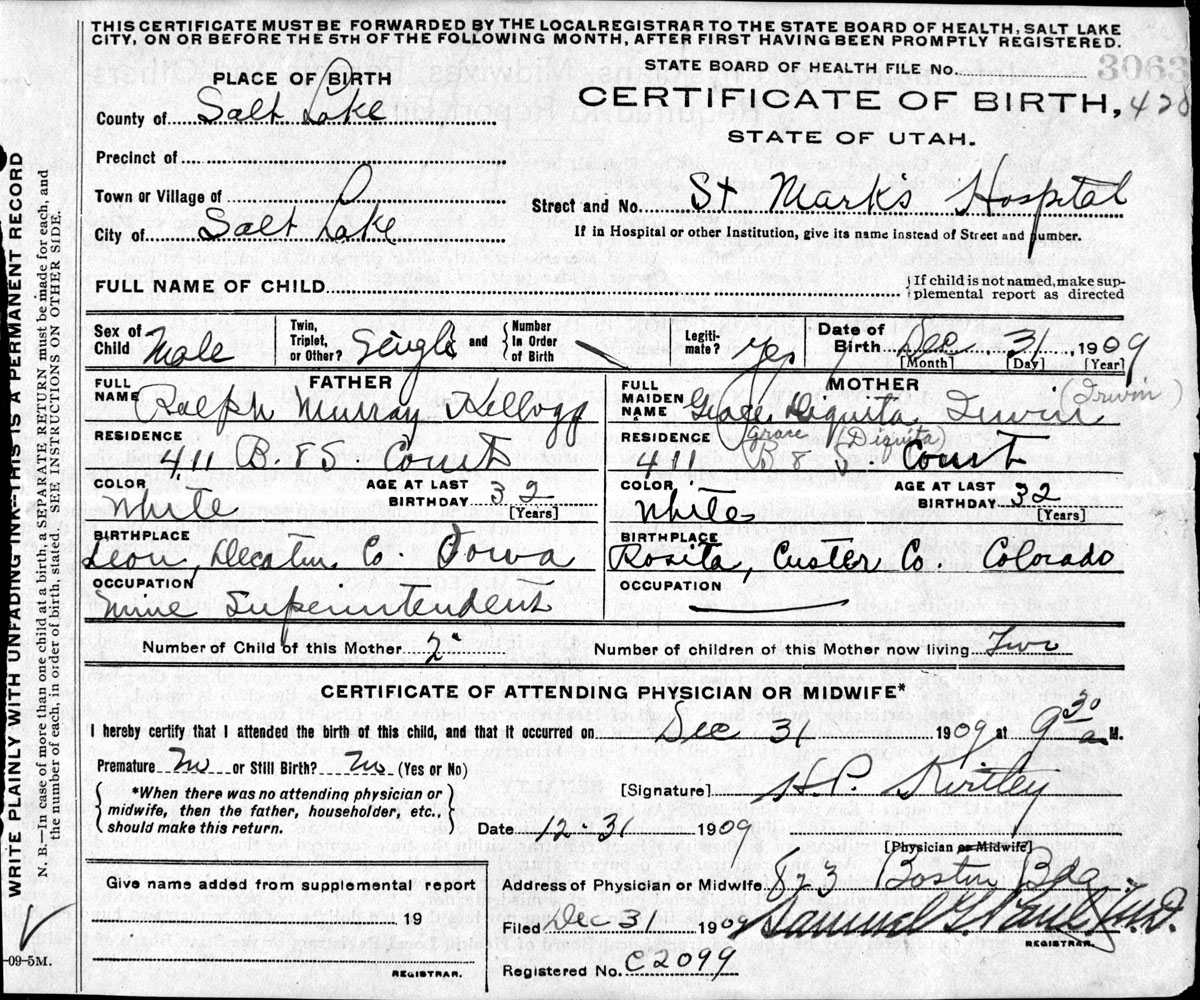 THIS CERTIFICATE MUST BE FORWARDED BY THE LOCAL REGISTRAR TO THE STATE BOARD OF HEALTH, SALT LAKE
CITY, ON OR BEFORE THE 5TH OF THE FOLLOWING MONTH, AFTER FIRST HAVING BEEN PROMPTLY REGISTERED.
STATE BOARD OF HEALTH FILE No. 3063
PLACE OF BIRTH
CERTIFICATE OF BIRTH, 428
County of Salt Lake
STATE OF UTAH.
Precinct of
Town or Village of
Street and No. St Mark's Hospital
City of Salt Lake
If in Hospital or other Institution, give its name instead of Street and number.
FULL NAME OF CHILD
If child is not named, make sup-
plemental report as directed
Sex of Child Male
Twin, Triplet, or Other? Single and Number In Order of Birth
Legiti-mate? Yes
Date of Birth Dec 31 1909
[Month] [Day] [Year]
FATHER
FULL NAME Ralph Murray Kellogg
RESIDENCE
411 B. & S. Court
COLOR White
AGE AT LAST BIRTHDAY 32 [Years]
BIRTHPLACE
Leon, Decatur Co. Iowa
OCCUPATION
Mine Superintendent
MOTHER
FULL MAIDEN NAME Grace Diquita Irwin (Irwin)
(Grace (Diquita)
RESIDENCE
411 B & S. Court
COLOR White
AGE AT LAST BIRTHDAY 32 [Years]
BIRTHPLACE
Rosita, Custer Co. Colorado
OCCUPATION
Number of Child of this Mother 2"
Number of children of this Mother now living Two
CERTIFICATE OF ATTENDING PHYSICIAN OR MIDWIFE*
I hereby certify that I attended the birth of this child, and that it occurred on Dec 31 1909 at 9 30 a M.
Premature No or Still Birth? No (Yes or No)
[Signature] H.P. Kirtley
*When there was no attending physician or
midwife, then the father, householder, etc.,
should make this return.
Date 12-31 1909
[Physician or Midwife]
Give name added from supplemental report
19
REGISTRAR.
Address of Physician or Midwife 823 Boston Bdg
Filed Dec 31 1909 Samuel G. Paul M.D.
REGISTRAR.
Registered No. C2099
WRITE PLAINLY WITH UNFADING INK—THIS IS A PERMANENT RECORD
N. B.—In case of more than one child at a birth, a SEPARATE RETURN must be made for each, and
the number of each, in order of birth, stated. SEE INSTRUCTIONS ON OTHER SIDE.
-09-5M.